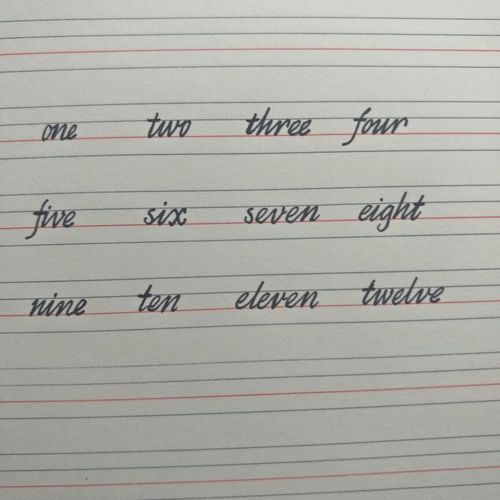 one two three four
five six seven eight
nine ten eleven twelve